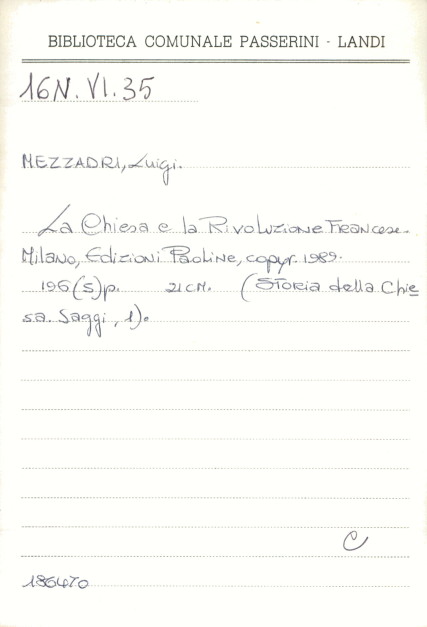 BIBLIOTECA COMUNALE PASSERINI - LANDI
16N.VI.35
MEZZADRI, Luigi.
La Chiesa e la Rivoluzione Francese.
Milano, Edizioni Paoline, copyr. 1989.
196(5)p. 21 cm. (Storia della Chie
sa. Saggi, 1).
C
186470